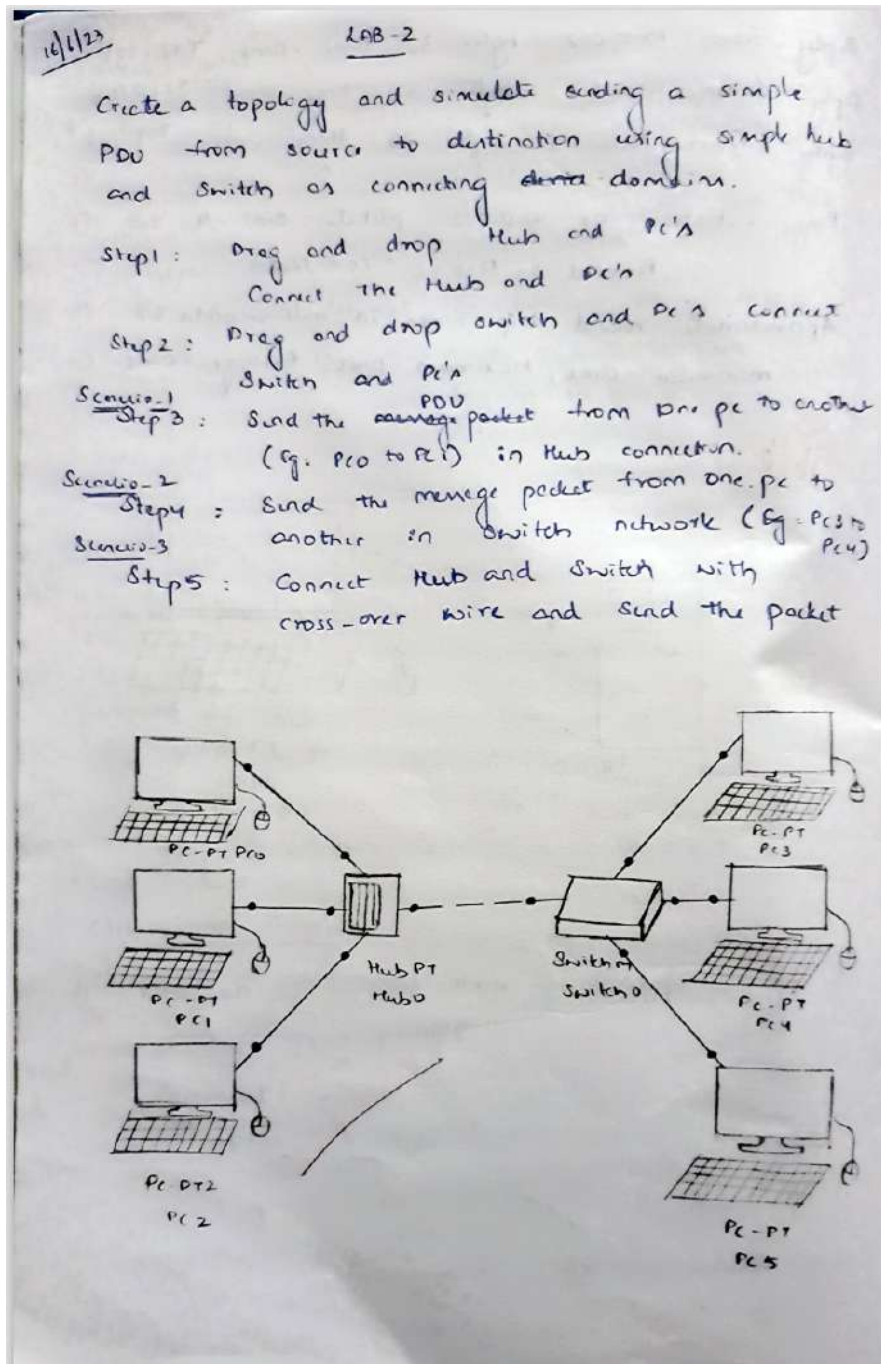 16/6/23
LAB-2
Create a topology and simulate sending a simple
PDU from source to destination using simple hub
and switch as connecting device domains.
Step1: Drag and drop Hub and Pc's
Connect the Hub and Pc's
Step2: Drag and drop switch and Pc's connect
Switch and Pc's
Scenario-1
PDU
Step 3: Send the message packet from one pc to another
(Eg. PC0 to PC1) in Hub connection.
Scenario-2
Step4: Send the message packet from one pc to
another in switch network (Eg: PC3 to
PC4)
Scenario-3
Step5: Connect Hub and Switch with
cross-over wire and send the packet
PC-PT PC0
PC-PT
PC3
PC-PT
PC1
Hub PT
Hub0
Switch PT
Switch0
PC-PT
PC4
PC-PT2
PC2
PC-PT
PC5